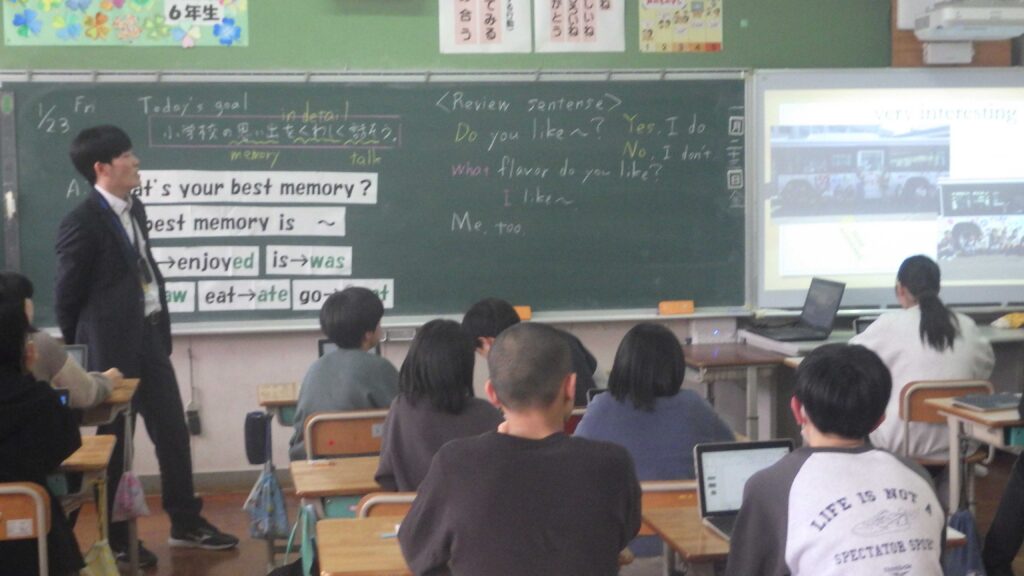 6年生
1/23 Fri
Today's goal
in detail
小学校の思い出をくわしく話そう。
memory
talk
at's your best memory?
best memory is ~
→enjoyed
is→was
aw
eat→ate
go→
<Review sentence>
Do you like~?
Yes. I do
No, I don't
what flavor do you like?
I like~
Me, too
very interesting
LIFE IS NOT A
SPECTATOR SPORT